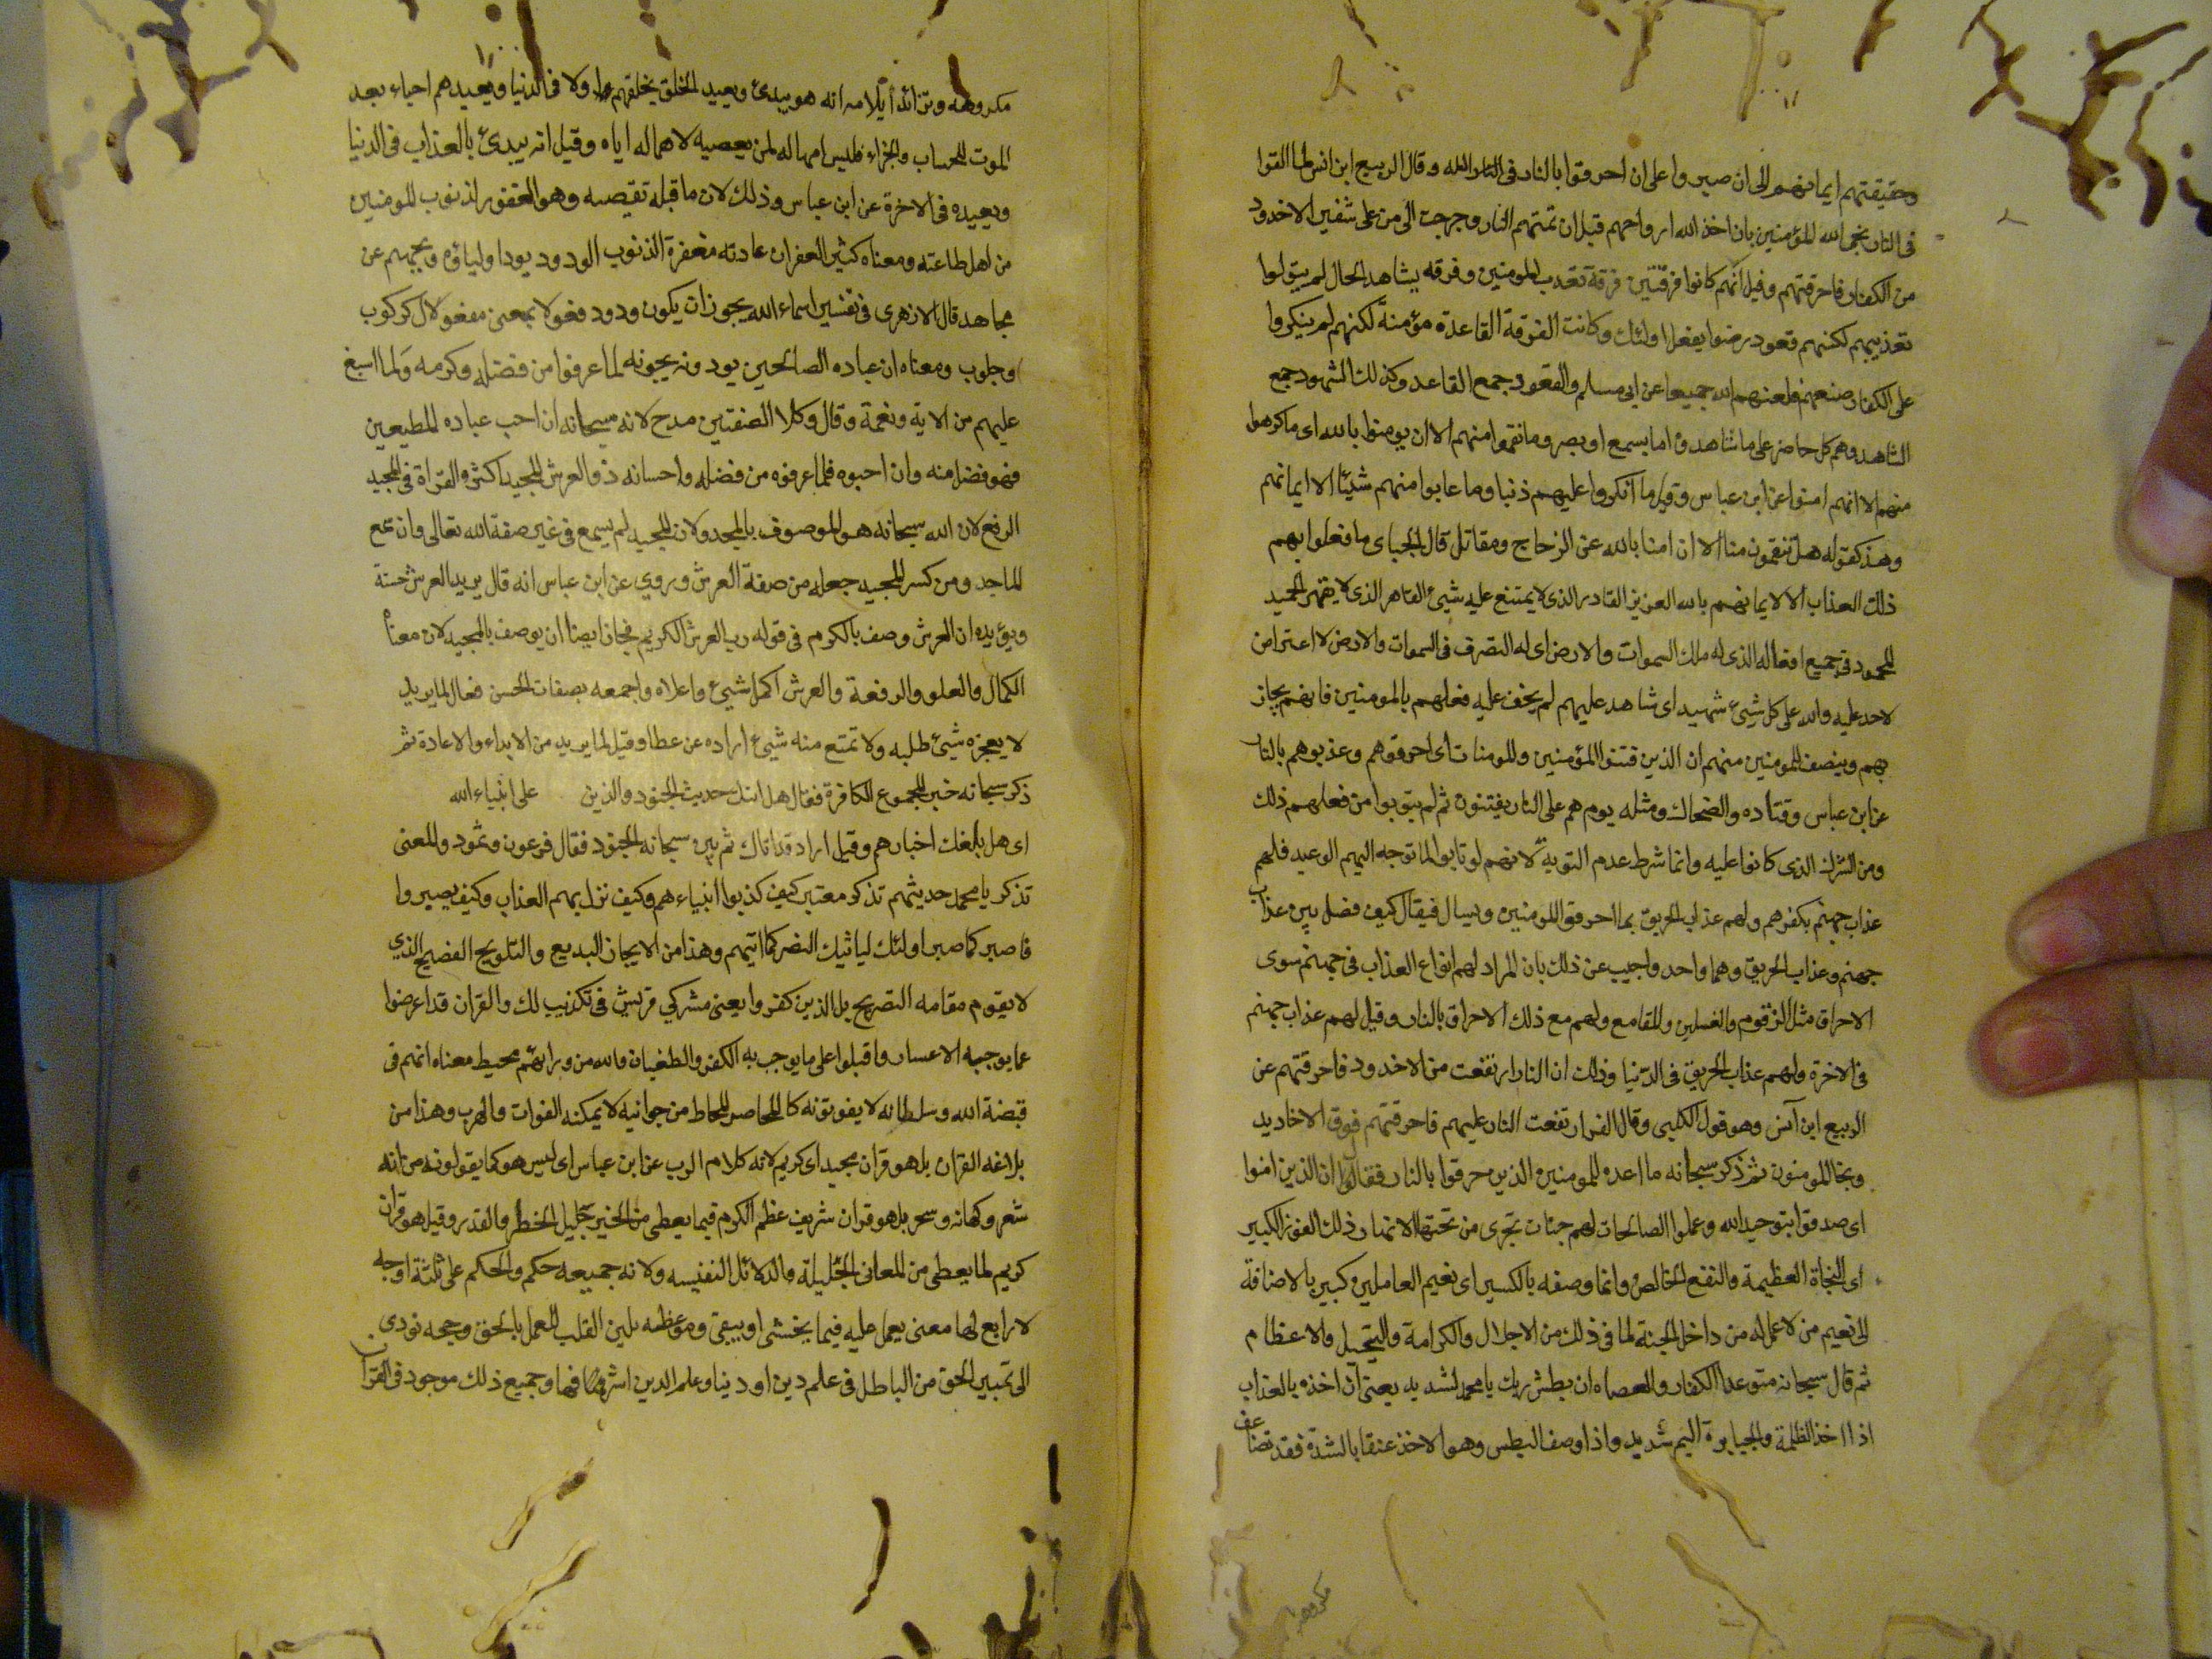 وحقيقتهم ايمانهم الى ان صبروا على ان احرقوا بالنار فى الله وقال الربيع ابن انس لما القوا
فى النار نجى الله المؤمنين بان اخذ الله ارواحهم قبل ان تمسهم النار وخرجت الى من على شفير الاخدود
من الكفار فاحرقتهم وقيل انهم كانوا فرقتين فرقة تعذب المومنين وفرقه يشاهد الحال لم يتولوا
تعذيبهم لكنهم قعود رضوا بفعل اولئك وكانت الفرقة القاعدة مؤمنة لكنهم لم ينكروا
على الكفار صنعهم فلعنهم الله جميعا عن ابى مسلم والقعود جمع القاعد وكذلك الشهود جمع
الشاهد وهم كل حاضر على ما شاهدوه اما بسمع او بصر وما نقموا منهم الا ان يومنوا بالله اى ما كرهوا
منهم الا انهم امنوا عن ابن عباس وقيل ما انكروا عليهم ذنبا وما عابوا منهم شيئا الا ايمانهم
وهذا كقوله هل تنقمون منا الا ان امنا بالله عن الزجاج ومقاتل قال الجبائى ما فعلوا بهم
ذلك العذاب الا لايمانهم بالله العزيز القادر الذى لا يمتنع عليه شيئ القاهر الذى لا يقهر الحميد
المحمود فى جميع افعاله الذى له ملك السموات والارض اى له التصرف فى السموات والارض لا اعتراض
لاحد عليه والله على كل شيئ شهيد اى شاهد عليهم لم يخف عليه فعلهم بالمومنين فانهم يجاز
بهم وينصف للمومنين منهم ان الذين فتنوا المؤمنين والمومنات اى احرقوهم وعذبوهم بالنار
عن ابن عباس وقتاده والضحاك ومثله يوم هم على النار يفتنون ثم لم يتوبوا من فعلهم ذلك
ومن الشرك الذى كانوا عليه وانما شرط عدم التوبة لانهم لو تابوا لما توجه اليهم الوعيد فلهم
عذاب جهنم بكفرهم ولهم عذاب الحريق بما احرقوا المومنين ويسال فيقال كيف فصل بين عذاب
جهنم وعذاب الحريق وهما واحد واجيب عن ذلك بان المراد لهم انواع العذاب فى جهنم سوى
الاحراق مثل الزقوم والغسلين والمقامع ولهم مع ذلك الاحراق بالنار وقيل لهم عذاب جهنم
فى الاخرة ولهم عذاب الحريق فى الدنيا وذلك ان النار ارتفعت من الاخدود فاحرقتهم عن
الربيع ابن انس وهو قول الكلبى وقال الفرا ارتفعت النار عليهم فاحرقتهم فوق الاخاديد
ونجا المومنون ثم ذكر سبحانه ما اعده للمومنين الذين حرقوا بالنار فقال ان الذين امنوا
اى صدقوا بتوحيد الله وعملوا الصالحات لهم جنات تجرى من تحتها الانهار ذلك الفوز الكبير
اى النجاة العظيمة والنفع الخالص وانما وصفه بالكبير اى نعيم العاملين كبير بالاضافة
الى نعيم من لا عمل له من داخل الجنة لما فى ذلك من الاجلال والكرامة والتبجيل والاعظام
ثم قال سبحانه متوعدا الكفار والعصاه ان بطش ربك يا محمد لشديد يعنى ان اخذه بالعذاب
اذا اخذ الظلمة والجبابرة اليم شديد واذا وصف البطش وهو الاخذ عنفا بالشدة فقد تضاعف
مكروهه
مكروهه وتزائد ايلامه انه هو يبدئ ويعيد الخلق يخلقهم اولا فى الدنيا ويعيدهم احياء بعد
الموت للحساب والجزاء فليس امهاله لمن يعصيه لاهماله اياه وقيل انه يبدئ بالعذاب فى الدنيا
ويعيده فى الاخرة عن ابن عباس وذلك لان ما قبله تقيضيه وهو الغفور لذنوب المومنين
من اهل طاعته ومعناه كثير الغفران عادته مغفرة الذنوب الودود يود اولياؤه ويحبهم عن
مجاهد قال الازهرى فى تفسير اسماء الله يجوز ان يكون ودود فعولا بمعنى مفعولا كركوب
وحلوب ومعناه ان عباده الصالحين يودونه يحبونه لما عرفوا من فضله وكرمه ولما اسبغ
عليهم من الايه ونعمة وقال وكلا الصفتين مدح لانه سبحانه ان احب عباده المطيعين
فهو فضل منه وان احبوه فلما عرفوه من فضله واحسانه ذو العرش المجيد اكثر القراة فى المجيد
الرفع لان الله سبحانه هو الموصوف بالمجد ولان المجيد لم يسمع فى غير صفة الله تعالى وان سمع
الماجد ومن كسر المجيد جعله من صفة العرش وروى عن ابن عباس انه قال يريد العرش حسنة
ويؤيده ان العرش وصف بالكرم فى قوله رب العرش الكريم فجاز ايضا ان يوصف بالمجيد لان معناه
الكمال والعلو والرفعة والعرش اكمل شيئ واعلاه واجمعه بصفات الحسن فعال لما يريد
لا يعجزه شيئ طلبه ولا تمتنع منه شيئ اراده عن عطا وقيل لما يريد من الابداء والاعادة ثم
ذكر سبحانه خبر الجموع الكافرة فقال هل اتيك حديث الجنود والذين على انبياء الله
اى هل بلغك اخبارهم وقيل اراد قد اتاك ثم بين سبحانه الجنود فقال فرعون وثمود والمعنى
تذكر يا محمد حديثهم تذكر معتبر كيف كذبوا انبياءهم وكيف نزل بهم العذاب وكيف يصيروا
فاصبر كما صبر اولئك لياتيك النصر كما اتيهم وهذا من الايجاز البديع والتلويح الفصيح الذي
لا يقوم مقامه التصريح بل الذين كفروا يعنى مشركي قريش فى تكذيب لك والقران قد اعرضوا
عما يوجبه الاعتبار واقبلوا على ما يوجب به الكفر والطغيان والله من ورائهم محيط معناه انهم فى
قبضة الله وسلطانه لا يفوتونه كالمحاصر المحاط من جوانبه لا يمكنه الفوات والهرب وهذا من
بلاغه القران بل هو قران مجيد اى كريم لانه كلام الرب عن ابن عباس اى ليس هو كما يقولونه من انه
شعر وكهانه وسحر بل هو قران شريف عظم الكرم فيما يعطى من الخير جليل الخطر والقدر وقيل هو قران
كريم لما يعطى من المعانى الجليلة والدلائل النفيسه ولانه جميعه حكم والحكم على ثلثة اوجه
لا رابع لها معنى يعمل عليه فيما يخشى او يتقى وموعظه تلين القلب للعمل بالحق وحجه تودى
الى تمييز الحق من الباطل فى علم دين او دنيا وعلم الدين اشرفهما وجميع ذلك موجود فى القران